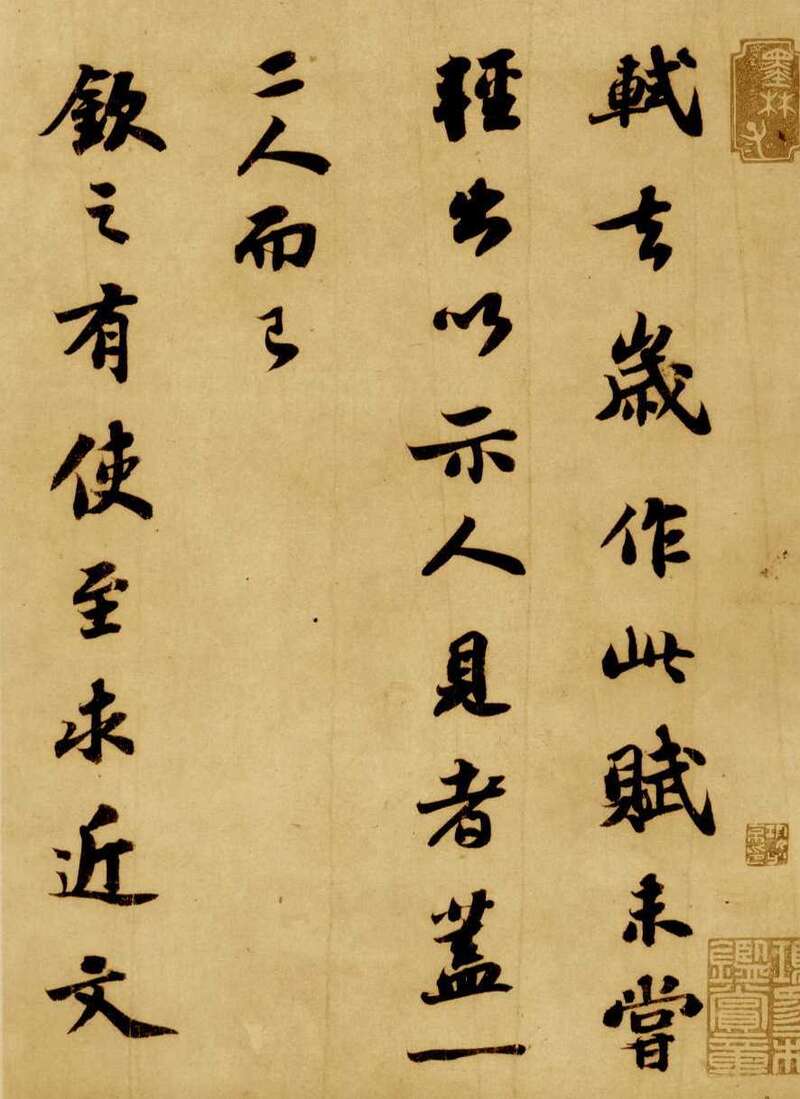 軾去歲作此賦未嘗
輕出以示人見者蓋一
二人而已
欽之有使至求近文
墨林
鑑賞章